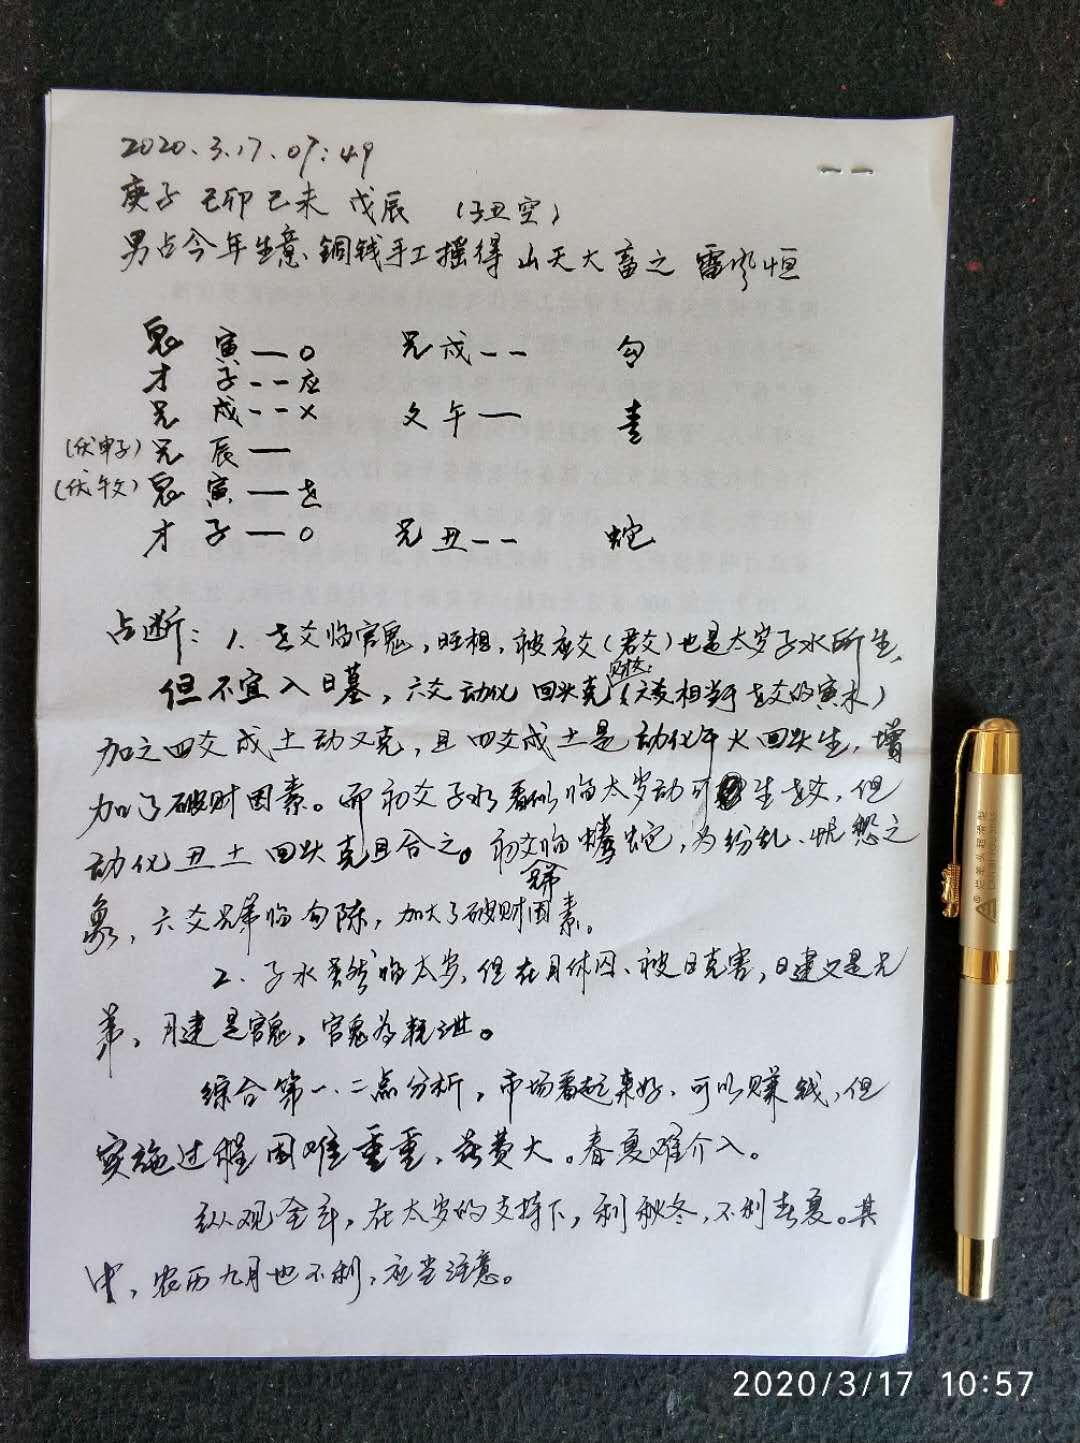 2020.3.17.07:49
庚子 己卯 己未 戊辰 (子丑空)
男占今年生意 铜钱手工摇得 山天大畜之 雷风恒
鬼 寅—o 兄戌-- 勾
才 子--应
兄 戌--x 父午— 青
(伏申子) 兄 辰—
(伏午父) 鬼 寅—世
才 子—o 兄丑-- 蛇
占断：1、世爻临官鬼，旺相，被应爻(君爻)也是太岁子水所生，
但不宜入日墓，六爻动化回头克(六爻相当于世爻的寅木)
加之四爻戌土动又克，且四爻戌土是动化午火回头生，增
加了破财因素。而初爻子水看似临太岁动可生世爻，但
动化丑土回头克且合之。初爻临螣蛇，为纷乱、怅怨之
象，六爻兄弟临勾陈，加大了破财因素。
2、子水虽然临太岁，但在月休囚、被日克害，日建又是兄
弟，月建是官鬼，官鬼为耗泄。
综合第一、二点分析，市场看起来好、可以赚钱，但
实施过程困难重重，花费大。春夏难介入。
纵观全年，在太岁的支持下，利秋冬，不利春夏。其
中，农历九月也不利，应当注意。
2020/3/17 10:57